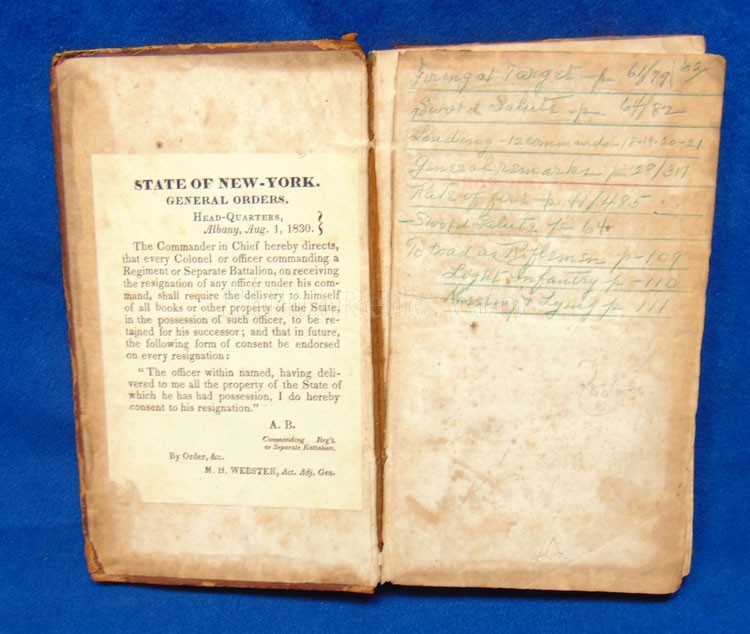 STATE OF NEW-YORK.
GENERAL ORDERS,
HEAD-QUARTERS,
Albany, Aug. 1, 1830.
The Commander in Chief hereby directs,
that every Colonel or officer commanding a
Regiment or Separate Battalion, on receiving
the resignation of any officer under his com-
mand, shall require the delivery to himself
of all books or other property of the State,
in the possession of such officer, to be re-
tained for his successor; and that in future,
the following form of consent be endorsed
on every resignation:
"The officer within named, having deli-
vered to me all the property of the State of
which he has had possession, I do hereby
consent to his resignation."
A. B.
Commanding Reg't.
or Separate Battalion.
By Order, &c.
M. H. WEBSTER, Act. Adj. Gen.
Firing at Target - p 61/79/82
Sword Salute - p 64/82
Loading - 12 commands - 18-19-20-21
General remarks p 28/311
Rate of fire - p 41/485
Sword Salute p 64
To load as Riflemen p-109
Light Infantry p-110
Kneeling & Lying p-111